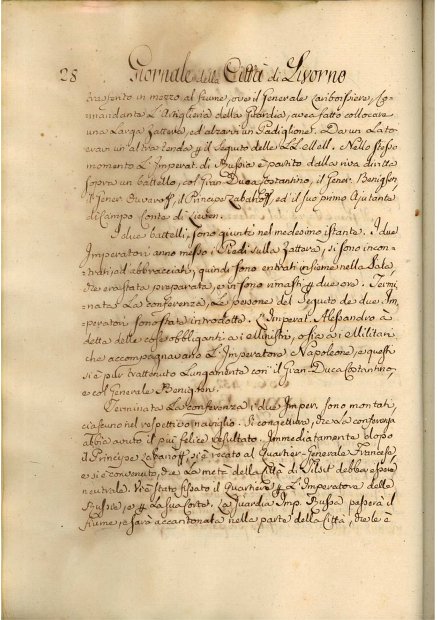 28 Giornale della Città di Livorno
trasferito in mezzo al fiume, ove il Generale Lariboissiere, Co-
mandante L'Artiglieria della Guardia, avea fatto collocare
una Larga Zattera, ed alzarvi un Padiglione. Da un Lato
eravi un'altra tenda pel seguito delle LL. MM. Nello stesso
momento L'Imperat. di Russia è partito dalla riva diritta
sopra un battello, col Gran Duca Costantino, il Gener. Benigsen,
il Gener. Ouvaroff, il Principe Labanoff, ed il suo primo Ajutante
di Campo, Conte di Lieven.
I due battelli, sono giunti nel medesimo istante. I due
Imperatori anno messo i Piedi sulla Zattera, si sono incon-
trati, ed abbracciati, quindi sono entrati insieme nella Sala,
che era stata preparata, e in sono rimasti due ore. Termi-
nata La conferenza, Le persone del seguito de due Im-
peratori sono state introdotte. L'Imperat. Alessandro à
detta delle cose obbliganti a i Ministri, ossia a i Militari
che accompagnavano L'Imperatore Napoleone, e questi
si è pur trattenuto Lungamente con il Gran-Duca Costantino,
e col Generale Benigsen.
Terminata La conferenza i due Imper. sono montati
ciascuno nel respettivo naviglio. Si congettura, che La conferenza
abbia avuto il più felice resultato. Immediatamente dopo
il Principe Labanoff si è recato al Quartier-Generale Francese,
e si è convenuto, che La metà della Città di Tilsit debba essere
neutrale. Vi è stato fissato il Quartiere L'Imperatore delle
Russie, e La sua Corte. La Guardia Imp. Russa passerà il
fiume, e sarà accantonata nella parte della Città, che le è